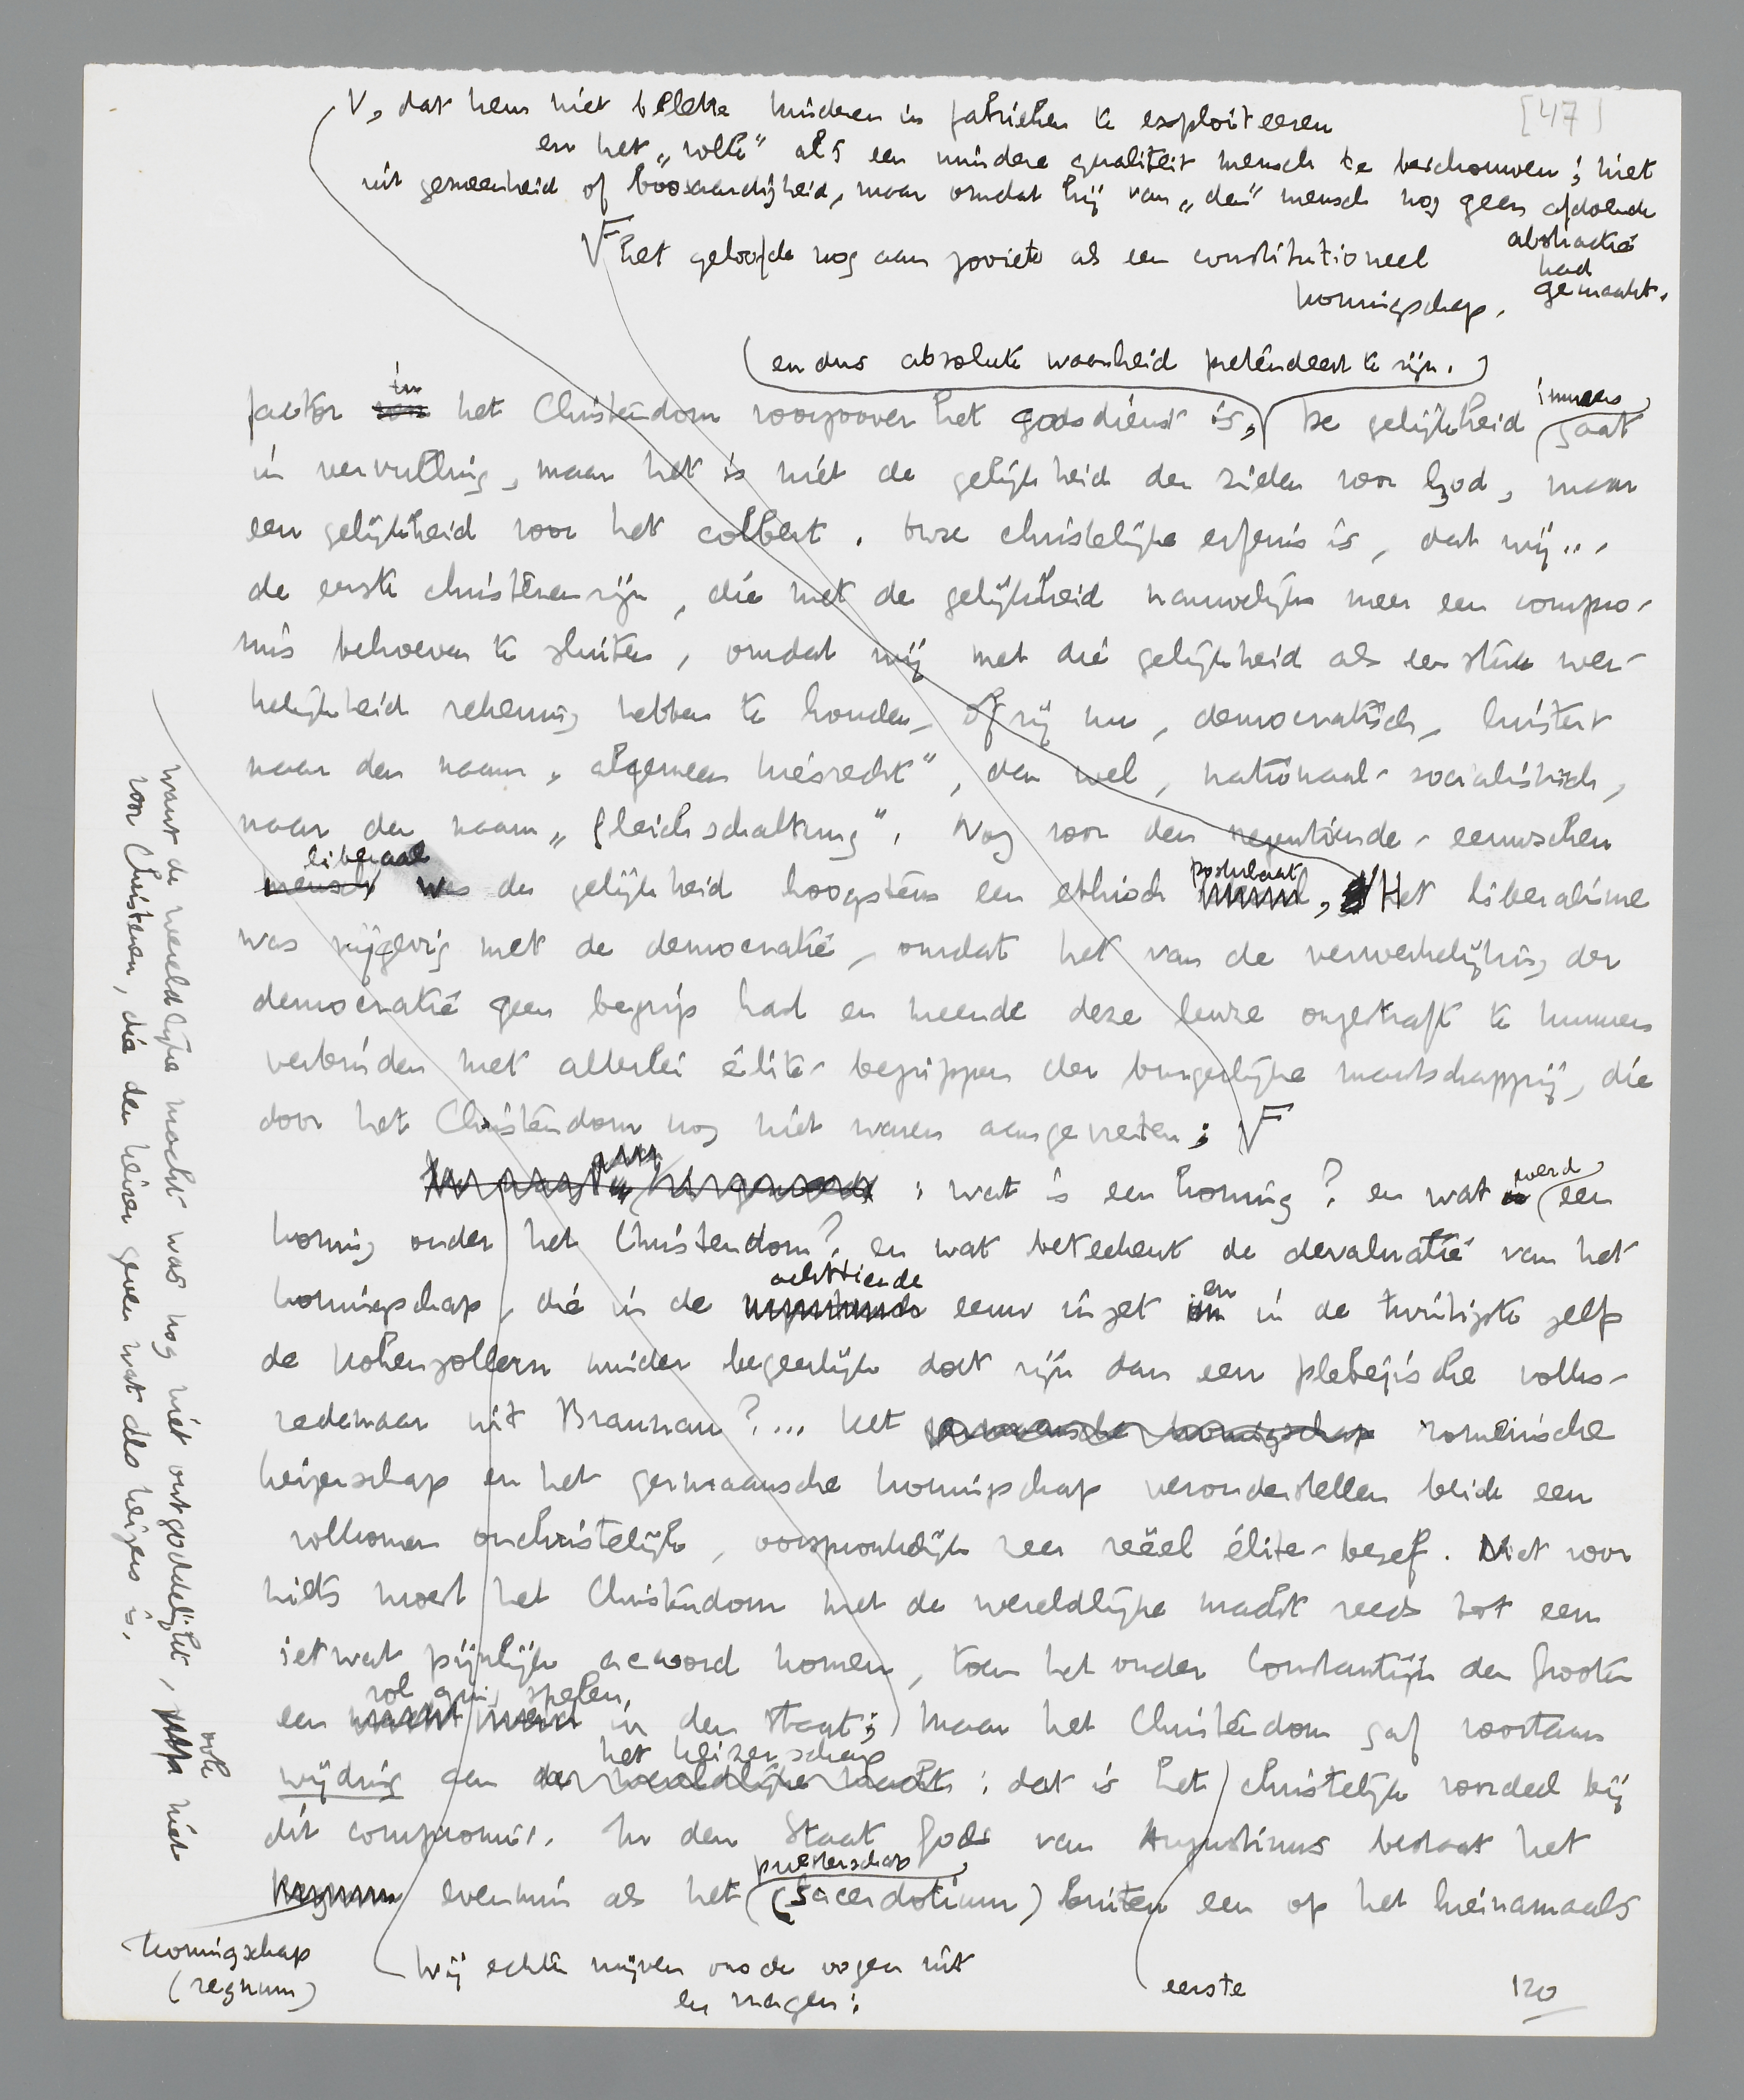 [47]
V, dat hem niet belette kinderen in fabrieken te exploiteeren
en het „volk” als een mindere qualiteit mensch te beschouwen; niet
uit gemeenheid of boosaardigheid, maar omdat hij van „den” mensch nog geen afdoende
abstractie
had
gemaakt.
het geloofde nog aan zooiets als een constitutioneel
koningschap.
(en dus absolute waarheid pretendeert te zijn.)
factor in het Christendom voorzoover het godsdienst is, De gelijkheid immers gaat
in vervulling, maar het is niet de gelijkheid der zielen voor God, maar
een gelijkheid voor het colbert. Onze christelijke erfenis is, dat wij...
de eerste christenen zijn, die met de gelijkheid nauwelijks meer een compro-
mis behoeven te sluiten, omdat wij met die gelijkheid als een stuk wer-
kelijkheid rekening hebben te houden, of zij nu, democratisch, luistert
naar den naam „algemeen kiesrecht”, dan wel, nationaal-socialistisch,
naar den naam „Gleichschaltung”. Nog voor den negentiende-eeuwschen
mensch liberaal was de gelijkheid hoogstens een ethisch postulaat, Het liberalisme
was vrijgevig met de democratie, omdat het van de verwerkelijking der
democratie geen begrip had en meende deze leuze ongestraft te kunnen
verbinden met allerlei élite-begrippen der burgerlijke maatschappij, die
door het Christendom nog niet waren aangevreten;
: wat is een koning? en wat werd een
koning onder het Christendom? en wat beteekent de devaluatie van het
koningschap, die in de achttiende eeuw inzet en in de twintigste zelfs
de Hohenzollern minder begeerlijk doet zijn dan een plebejische volks-
redenaar uit Braunau?... Het germaansche koningschap romeinsche
keizerschap en het germaansche koningschap veronderstellen beide een
volkomen onchristelijk, oorspronkelijk zeer reëel élite-besef. Niet voor
niets moest het Christendom met de wereldlijke macht reeds tot een
ietwat pijnlijk accoord komen, toen het onder Constantijn den Groote
een rol ging spelen, in den staat; maar het Christendom gaf voortaan
wijding aan het keizerschap der wereldlijke macht: dat is het christelijk voordeel bij
dit compromis. In den Staat Gods van Augustinus bestaat het
regnum evenmin als het priesterschap (sacerdotium) buiten een op het hiernamaals
koningschap
(regnum)
Wij echter wrijven ons de oogen uit
en vragen:
eerste
120
want de wereldlijke macht was nog niet ontgoddelijkt, ook niet
voor Christenen, die den keizer geven wat des keizers is.